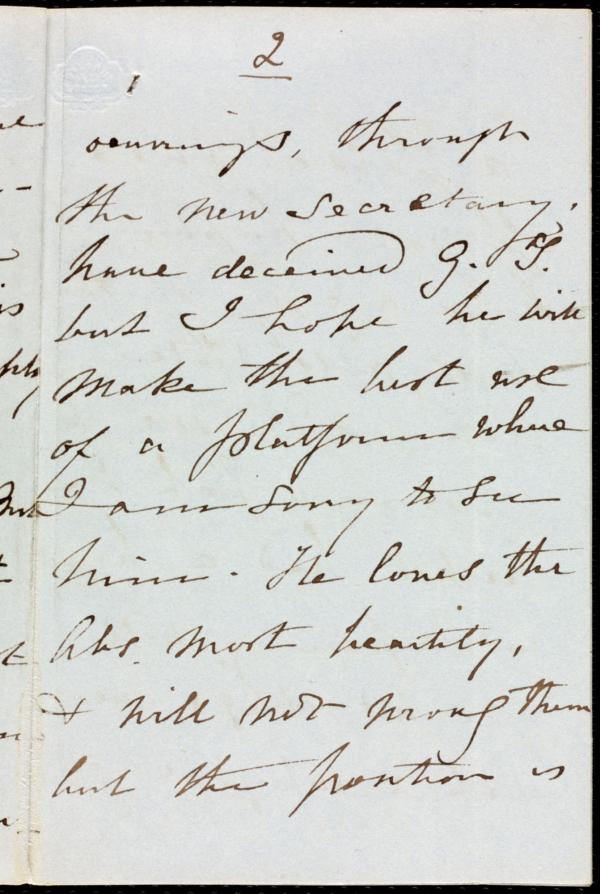 2
the new Secretary,
have deceived G. T.
but I hope he will
make the best use
of a platform where
I am sorry to see
him. He loves the
Abs. most heartily,
& will not wrong them
but the position is
through